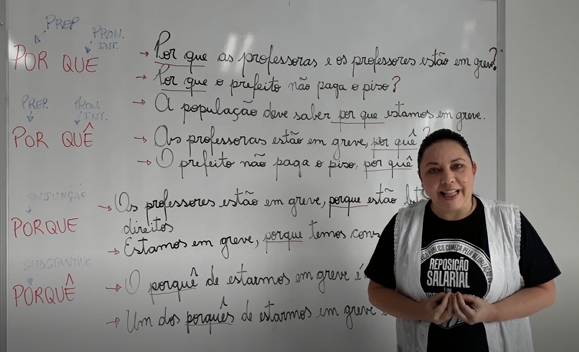 PREP. PRON. INT.
POR QUE
→ Por que as professoras e os professores estão em greve?
→ Por que o prefeito não paga o piso?
→ A população deve saber por que estamos em greve.
PREP. PRON. INT.
POR QUÊ
→ As professoras estão em greve, por quê?
→ O prefeito não paga o piso, por quê
CONJUNÇÃO
PORQUE
→ Os professores estão em greve, porque estão
direitos
→ Estamos em greve, porque temos
SUBSTANTIVO
PORQUÊ
→ O porquê de estarmos em greve é
→ Um dos porquês de estarmos em greve
REPOSIÇÃO
SALARIAL